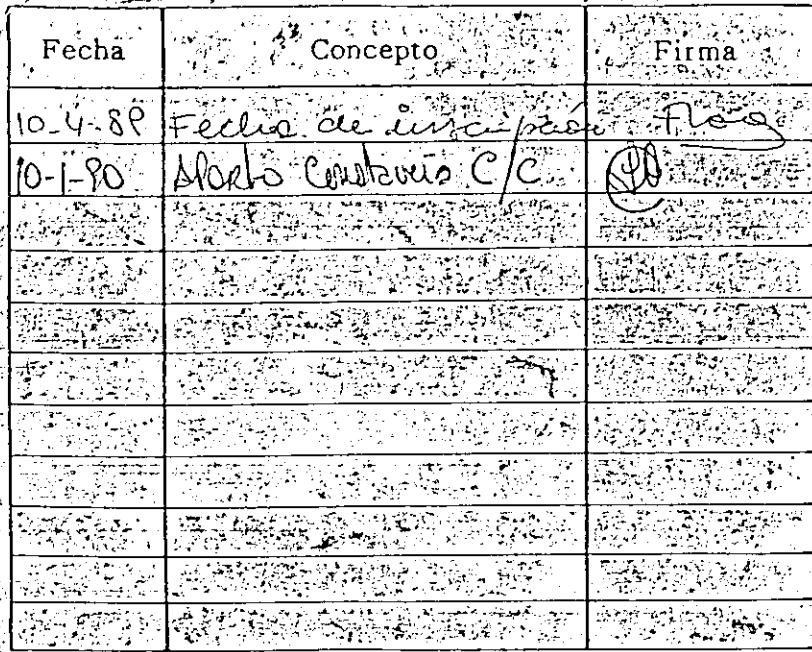 Fecha Concepto Firma
10-4-89 Fecha de inscripción
10-1-90 Aporto C/C